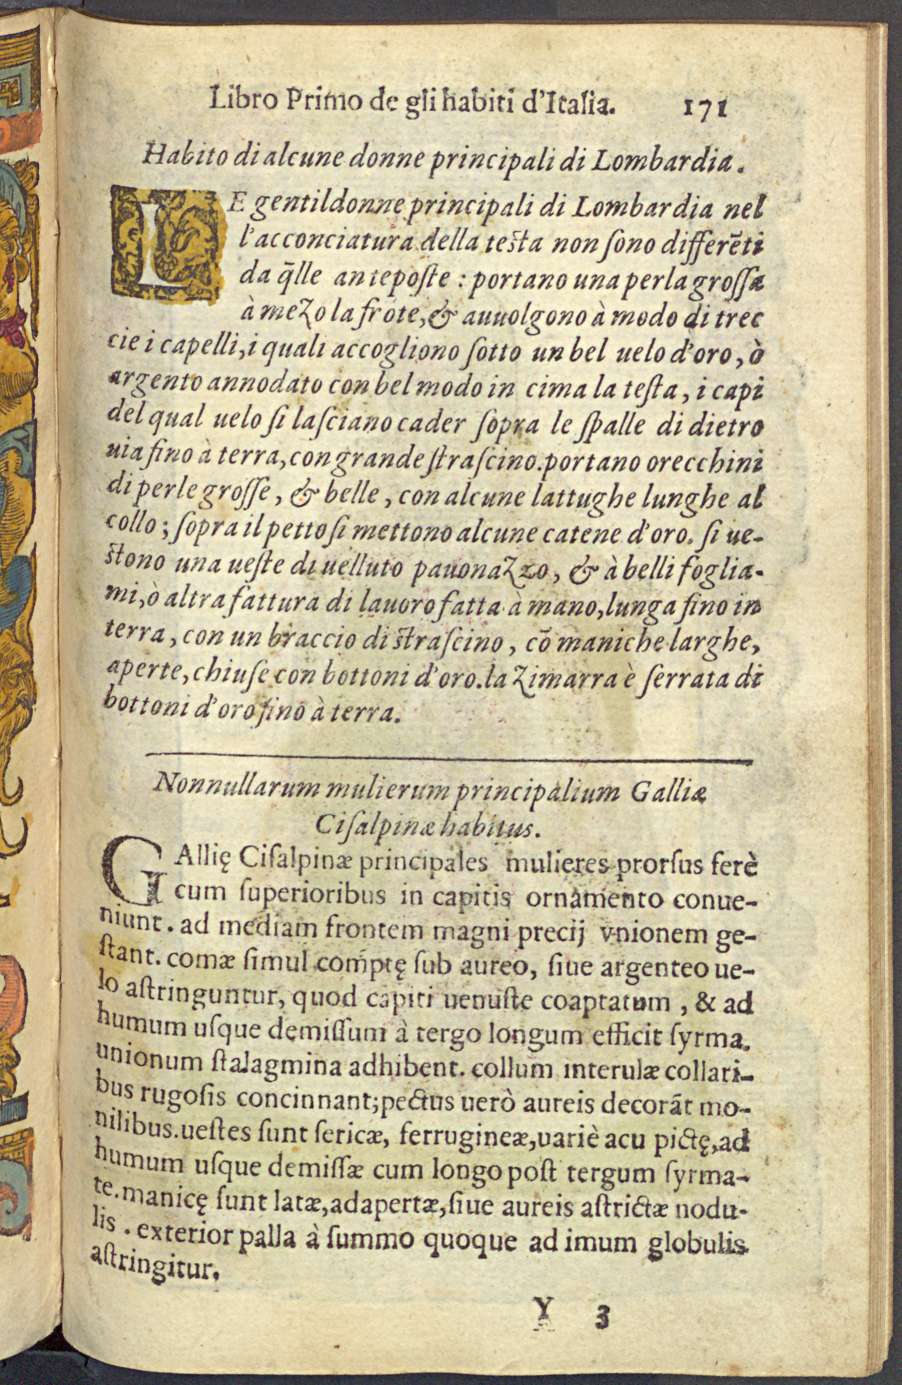 Libro Primo de gli habiti d'Italia. 171
Habito di alcune donne principali di Lombardia.
LE gentildonne principali di Lombardia nel
l'acconciatura della testa non sono differẽti
da q̃lle anteposte : portano una perla grossa
à mezo la frõte, & auuolgono à modo di trec
cie i capelli, i quali accogliono sotto un bel uelo d'oro, ò
argento annodato con bel modo in cima la testa, i capi
del qual uelo si lasciano cader sopra le spalle di dietro
uia fino à terra, con grande strascino. portano orecchini
di perle grosse, & belle, con alcune lattughe lunghe al
collo; sopra il petto si mettono alcune catene d'oro. si ue-
stono una ueste di uelluto pauonazzo, & à belli foglia-
mi, ò altra fattura di lauoro fatta à mano, lunga fino in
terra, con un braccio di strascino, cõ maniche larghe,
aperte, chiuse con bottoni d'oro. la zimarra è serrata di
bottoni d'oro fino à terra.
Nonnullarum mulierum principalium Galliæ
Cisalpinæ habitus.
GAllię Cisalpinæ principales mulieres prorsus ferè
cum superioribus in capitis ornamento conue-
niunt. ad mediam frontem magni precij vnionem ge-
stant. comæ simul comptę sub aureo, siue argenteo ue-
lo astringuntur, quod capiti uenuste coaptatum, & ad
humum usque demissum à tergo longum efficit syrma.
unionum stalagmina adhibent. collum interulæ collari-
bus rugosis concinnant; pectus uerò aureis decorãt mo-
nilibus. uestes sunt sericæ, ferrugineæ, uariè acu pictę, ad
humum usque demissæ cum longo post tergum syrma-
te. manicę sunt latæ, adapertæ, siue aureis astrictæ nodu-
lis. exterior palla à summo quoque ad imum globulis
astringitur.
Y 3